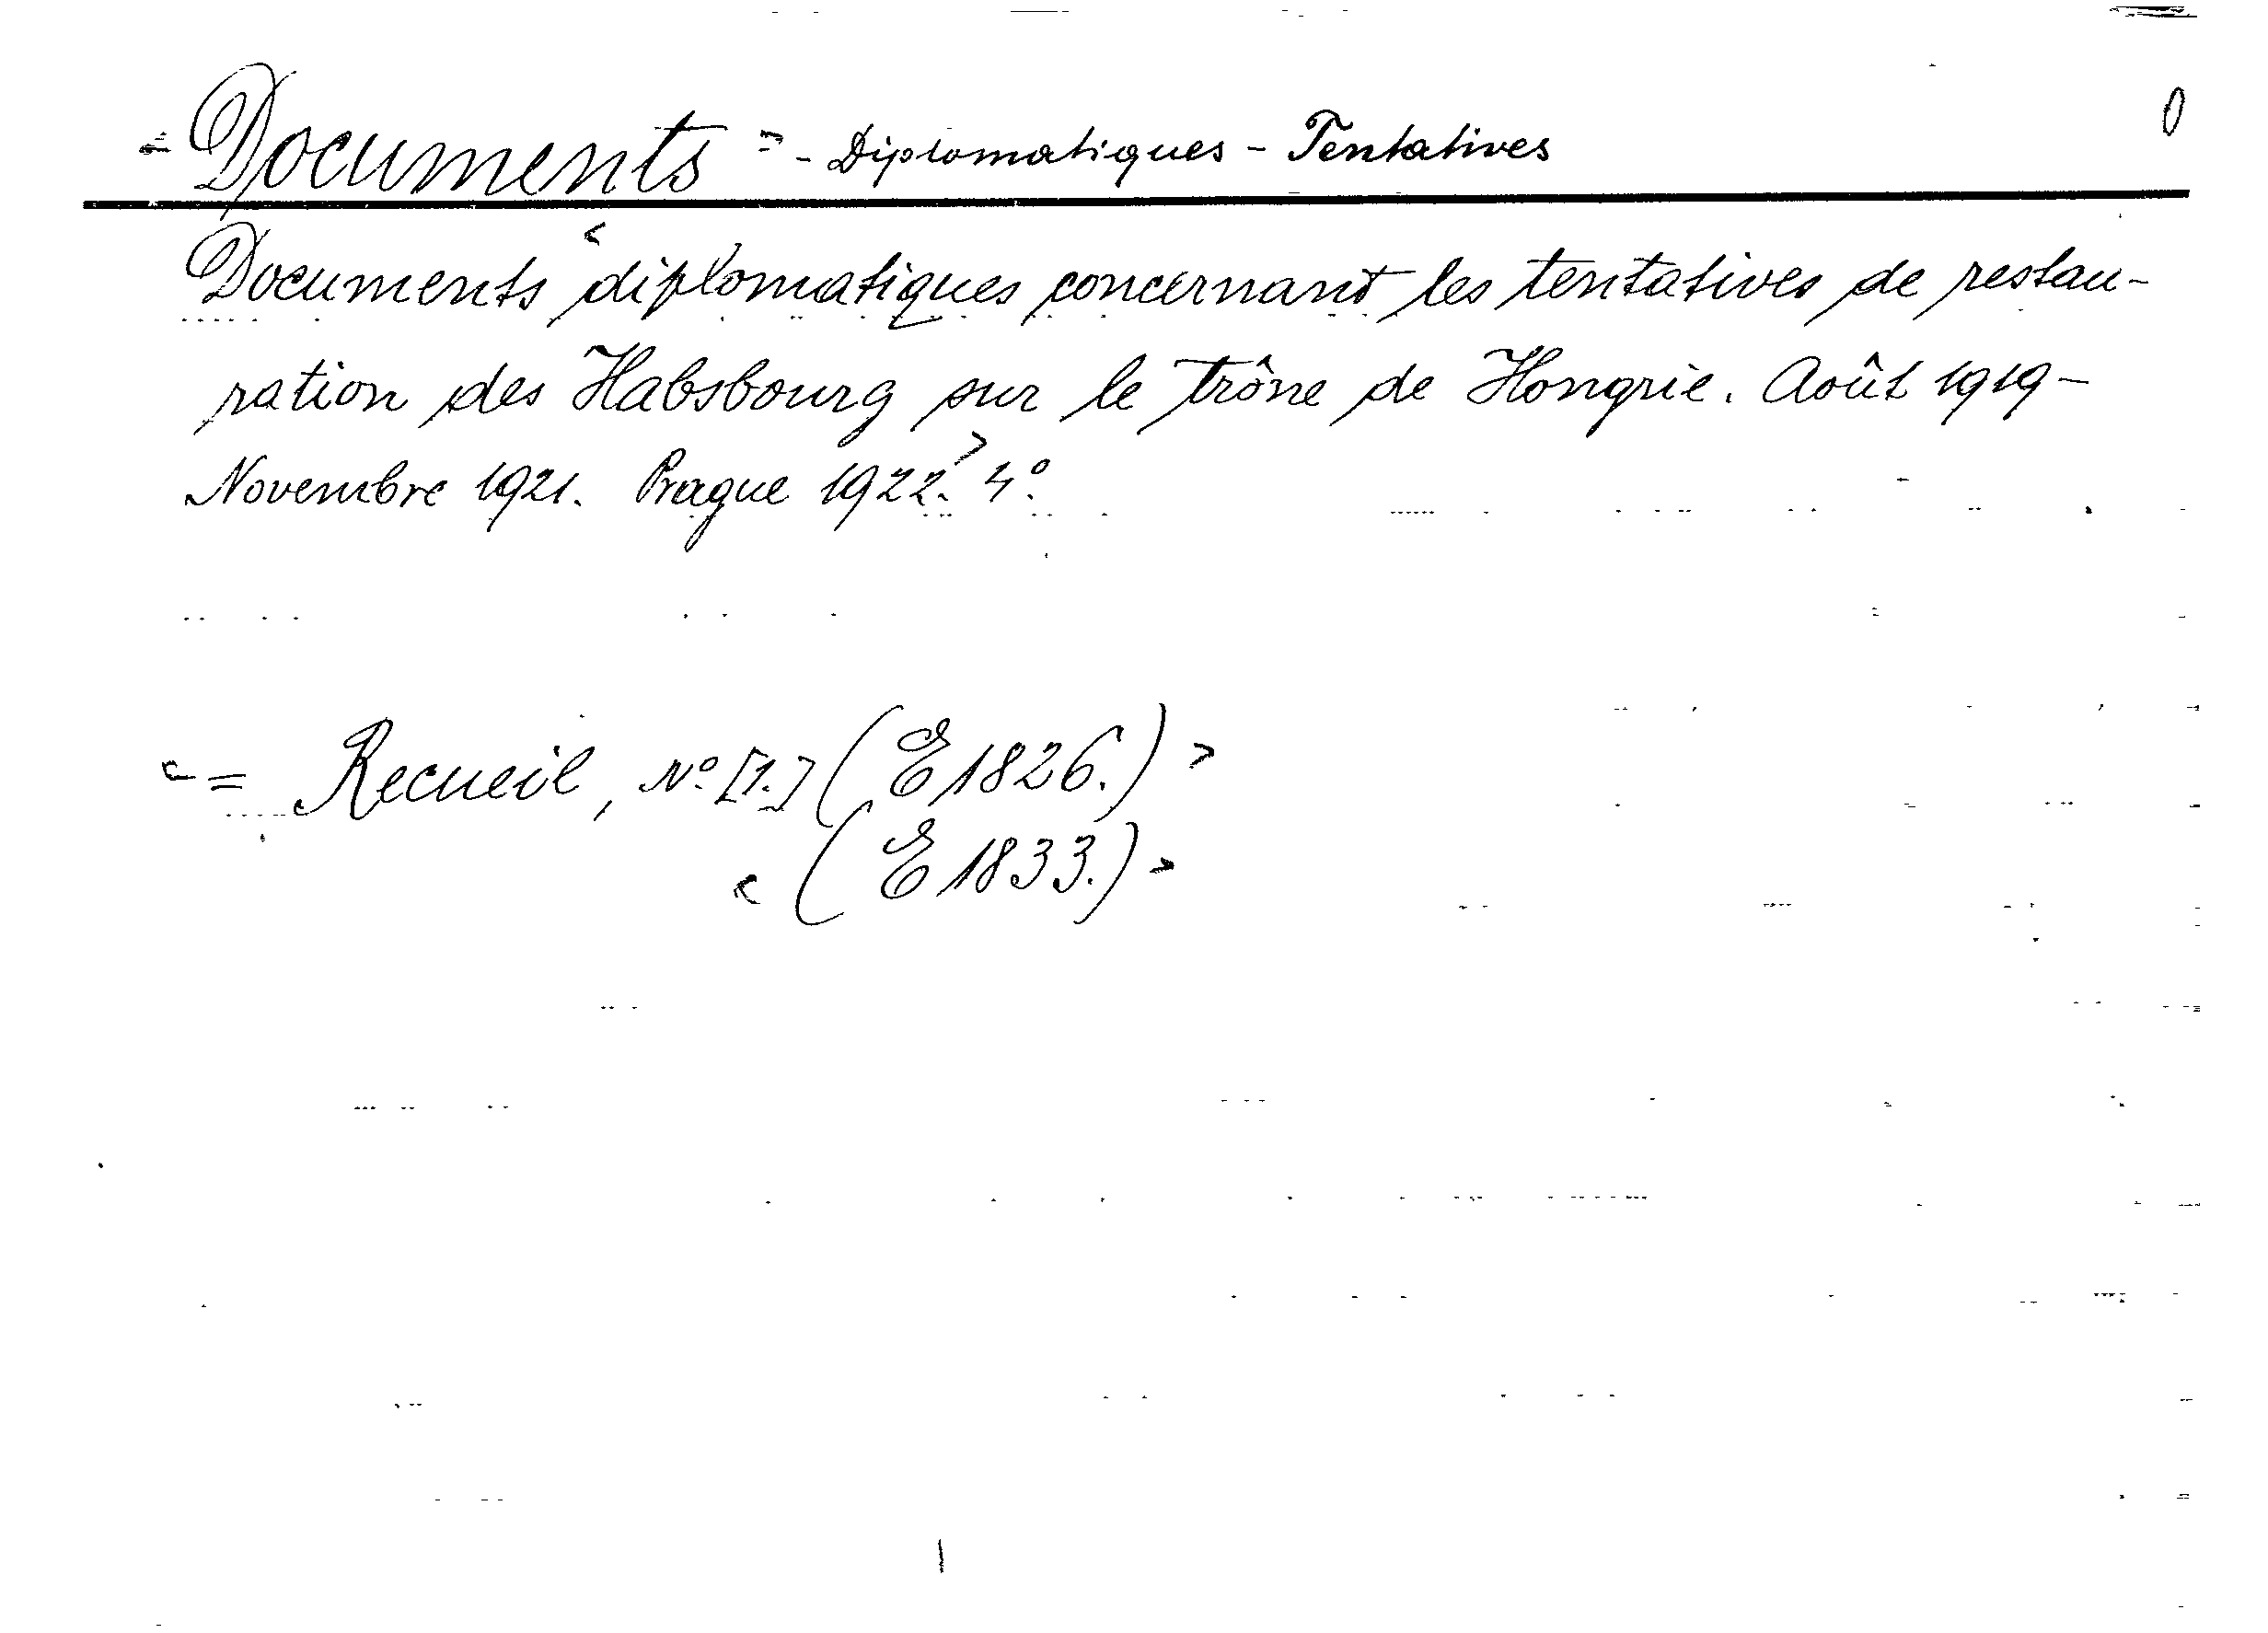 = Documents = - Diplomatiques - Tentatives 0
Documents < diplomatiques concernant les tentatives de restau-
ration des Habsbourg sur le trône de Hongrie. Août 1919-
Novembre 1921. Prague 1922.> 4º.
<= Recueil, Nº [1.] (E 1826.)>
<(E 1833.)>